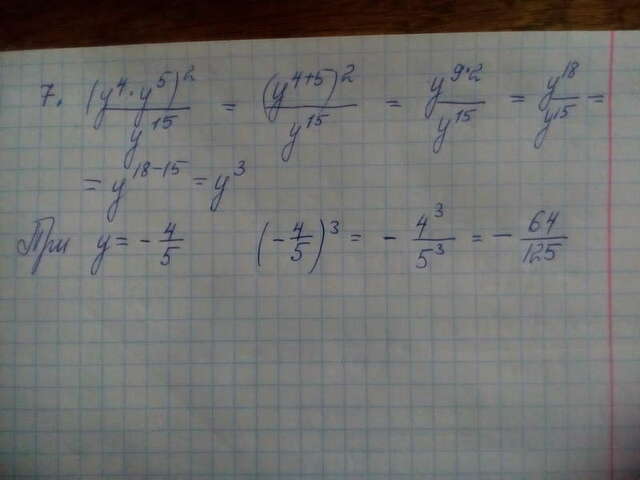 7. (y⁴·y⁵)²/y¹⁵ = (y⁴⁺⁵)²/y¹⁵ = y⁹·²/y¹⁵ = y¹⁸/y¹⁵ =
= y¹⁸⁻¹⁵ = y³
При y = -4/5 (-4/5)³ = -4³/5³ = -64/125